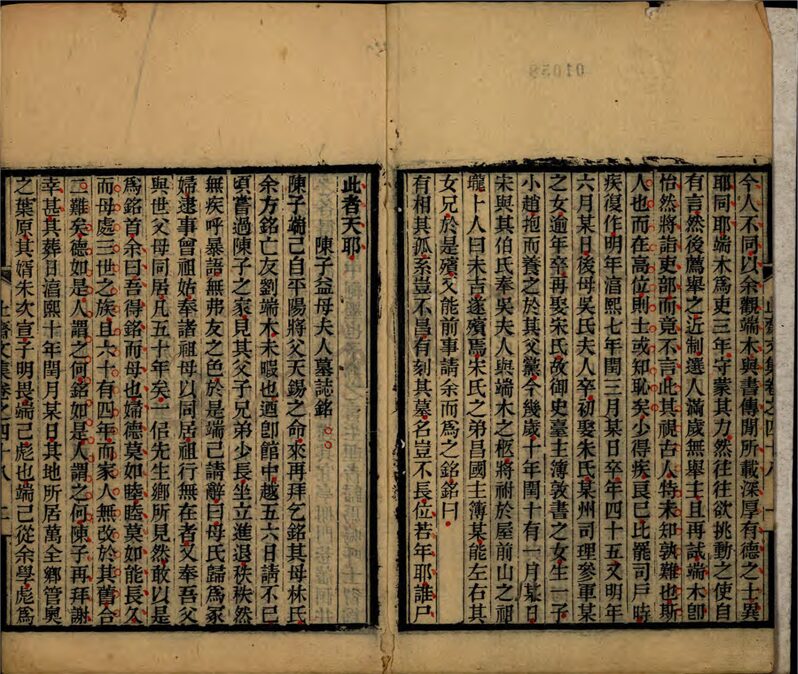 今人不同以余觀端木與書傳閒所載深厚有德之士異
耶同耶端木爲吏三年守蒙其力然往往欲挑動之使自
有言然後薦舉之近制選人滿歲無舉主且再試端木卽
怡然將詣吏部而竟不言此其視古人特未知孰難也斯
人也而在高位則士或知恥矣少得疾良已比罷司戸時
疾復作明年淳熙七年閏三月某日卒年四十五又明年
六月某日後母吳氏夫人卒初娶朱氏某州司理參軍某
之女逾年卒再娶宋氏故御史臺主簿敦書之女生一子
小趙抱而養之於其父黨今幾歲十年閏十有一月某日
宋與其伯氏奉吳夫人與端木之柩將祔於屋前山之祖
壠卜人曰未吉遂殯焉宋氏之弟昌國主簿某能左右其
女兄於是殯又能前事請余而爲之銘銘曰
有相其孤系豈不昌有刻其墓名豈不長位若年耶誰尸
止齋文集卷之四十八
此者天耶
陳子益母夫人墓誌銘
陳子端己自平陽將父天錫之命來再拜乞銘其母林氏
余方銘亡友劉端木未暇也逎卽館中越五六日請不已
頃嘗過陳子之家見其父子兄弟少長坐立進退秩秩然
無疾呼暴語無弗友之色於是端己請辭曰母氏歸爲冢
婦逮事曾祖姑奉諸祖母以同居祖行無在者又奉吾父
與世父母同居凡五十年矣一侶先生鄉所見然敢以是
爲銘首余曰吾得銘而母也婦德莫如睦睦莫如能長久
而母處三世之族且六十有四年而家人無改於其舊合
二難矣德如是人謂之何銘如是人謂之何陳子再拜謝
幸甚其葬日淳熙十年閏月某日其地所居萬全鄉管奧
之葉原其婿朱次宣子明畏端己彪也端己從余學彪爲
止齋文集卷之四十八 二
01058